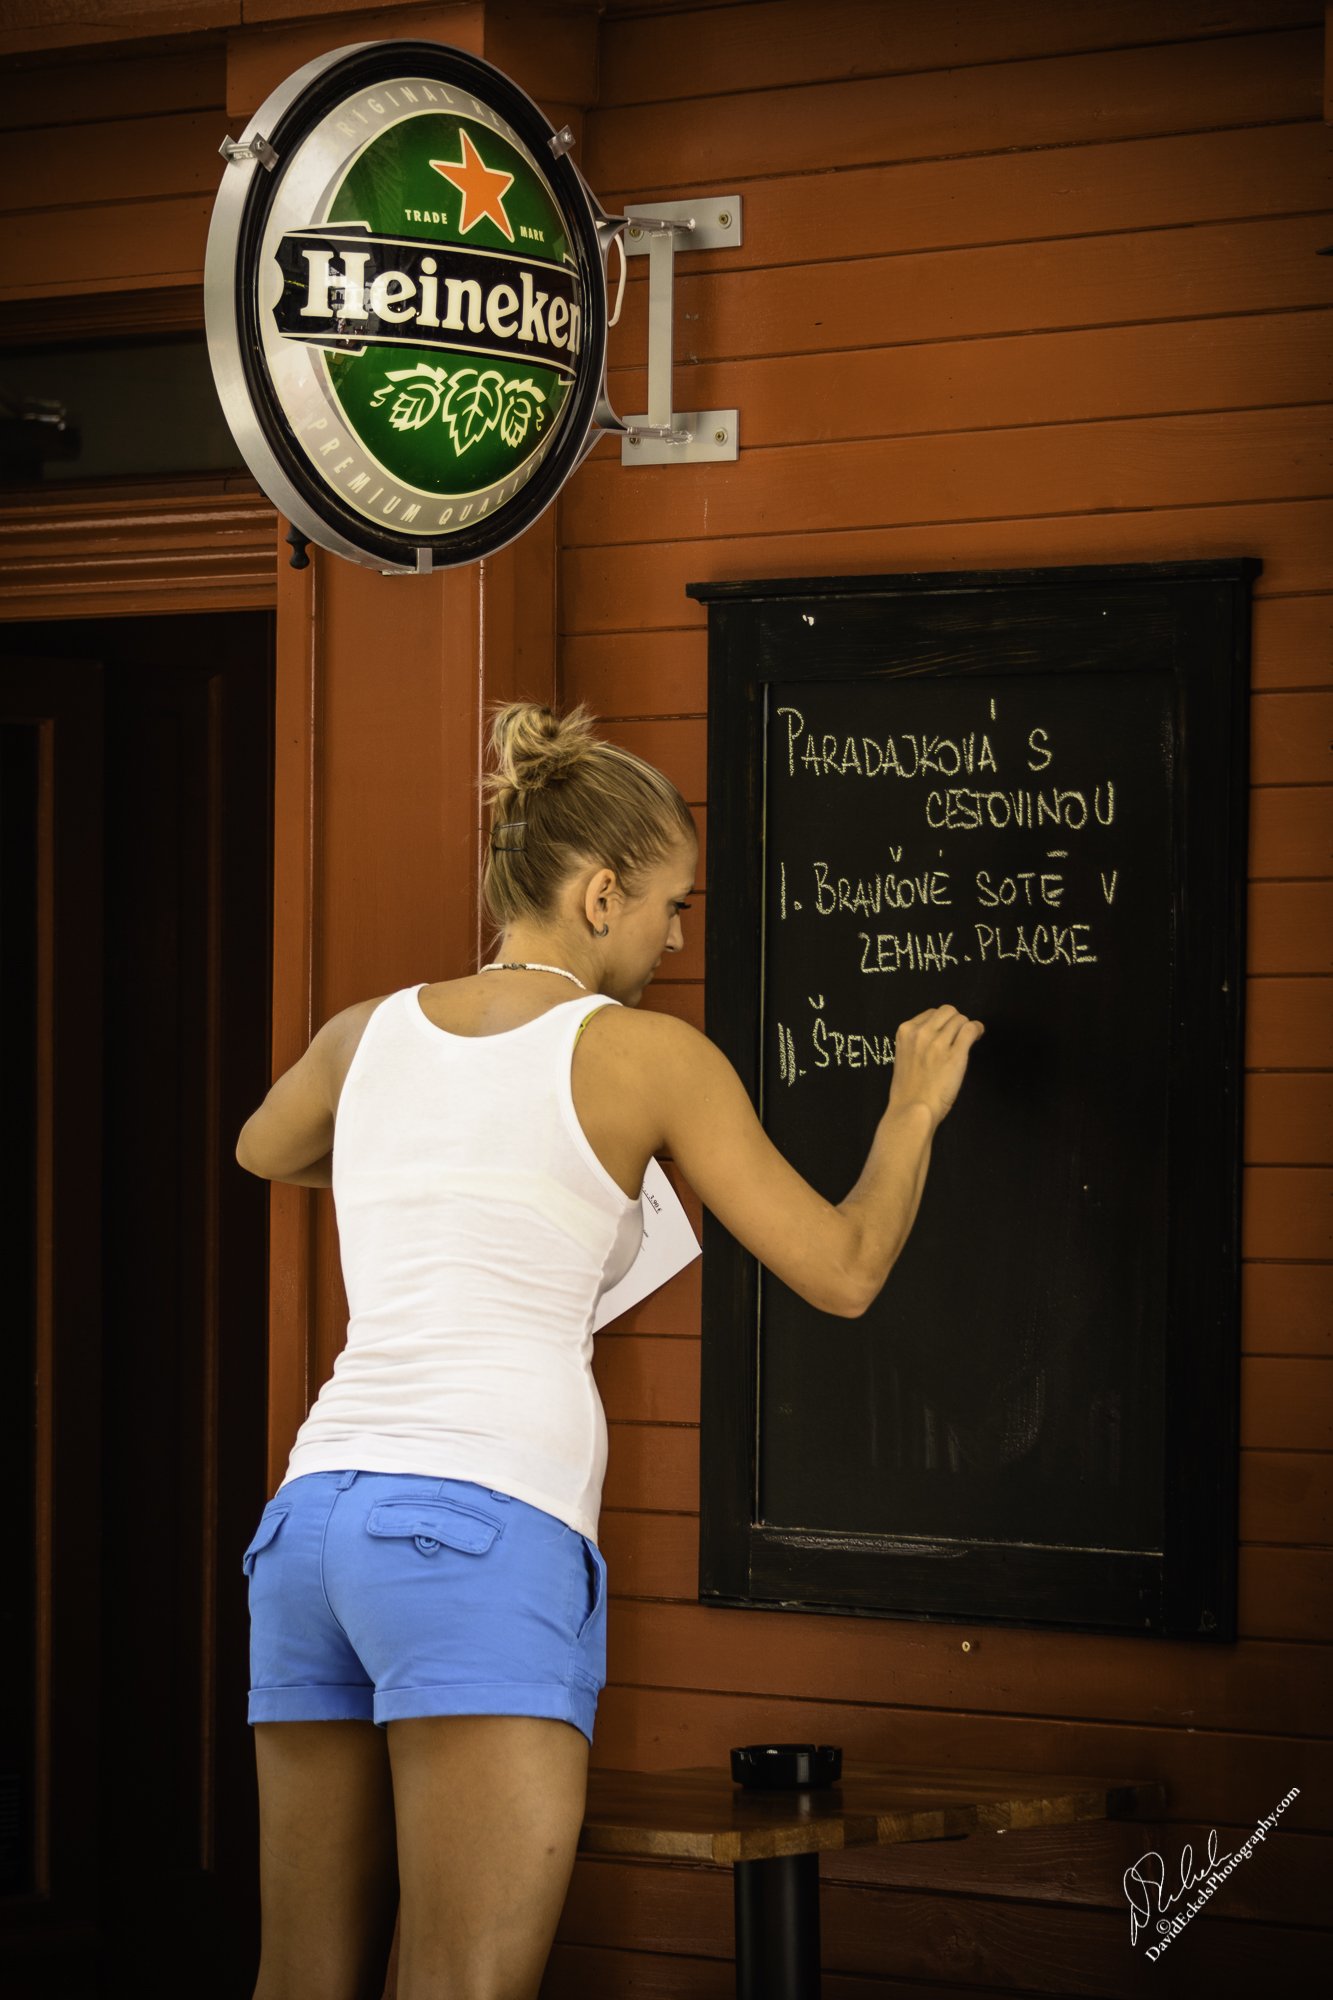 ORIGINAL
TRADE MARK
Heineken
PREMIUM QUALITY
PARADAJKOVÁ S
CESTOVINOU
I. BRAVČOVÉ SOTÉ V
ZEMIAK. PLACKE
II. ŠPENA
3,90 €
© DavidEckelsPhotography.com